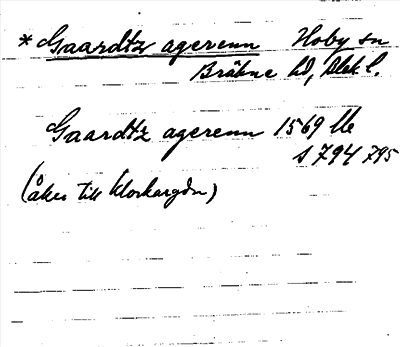 * Gaardtz agerenn Hoby sn
Bräkne hd, Blek l.
Gaardtz agerenn 1569 lle
s 794 795
(åker till klockargdn)